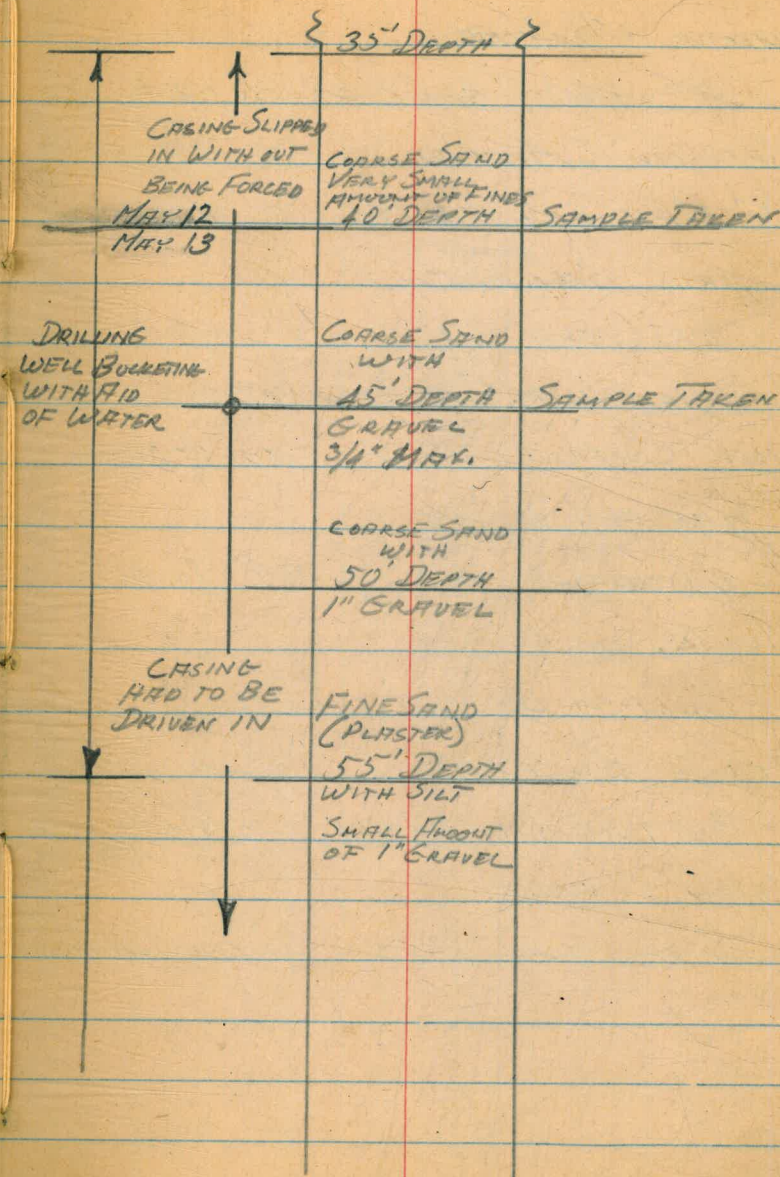 35' DEPTH
CASING SLIPPED
IN WITH OUT
BEING FORCED
COARSE SAND
VERY SMALL
AMOUNT OF FINES
MAY 12
40' DEPTH
SAMPLE TAKEN
MAY 13
DRILLING
WELL BUCKETING
WITH AID
OF WATER
COARSE SAND
WITH
45' DEPTH
SAMPLE TAKEN
GRAVEL
3/4" MAX.
COARSE SAND
WITH
50' DEPTH
1" GRAVEL
CASING
HAD TO BE
DRIVEN IN
FINE SAND
(PLASTER)
55' DEPTH
WITH SILT
SMALL AMOUNT
OF 1" GRAVEL